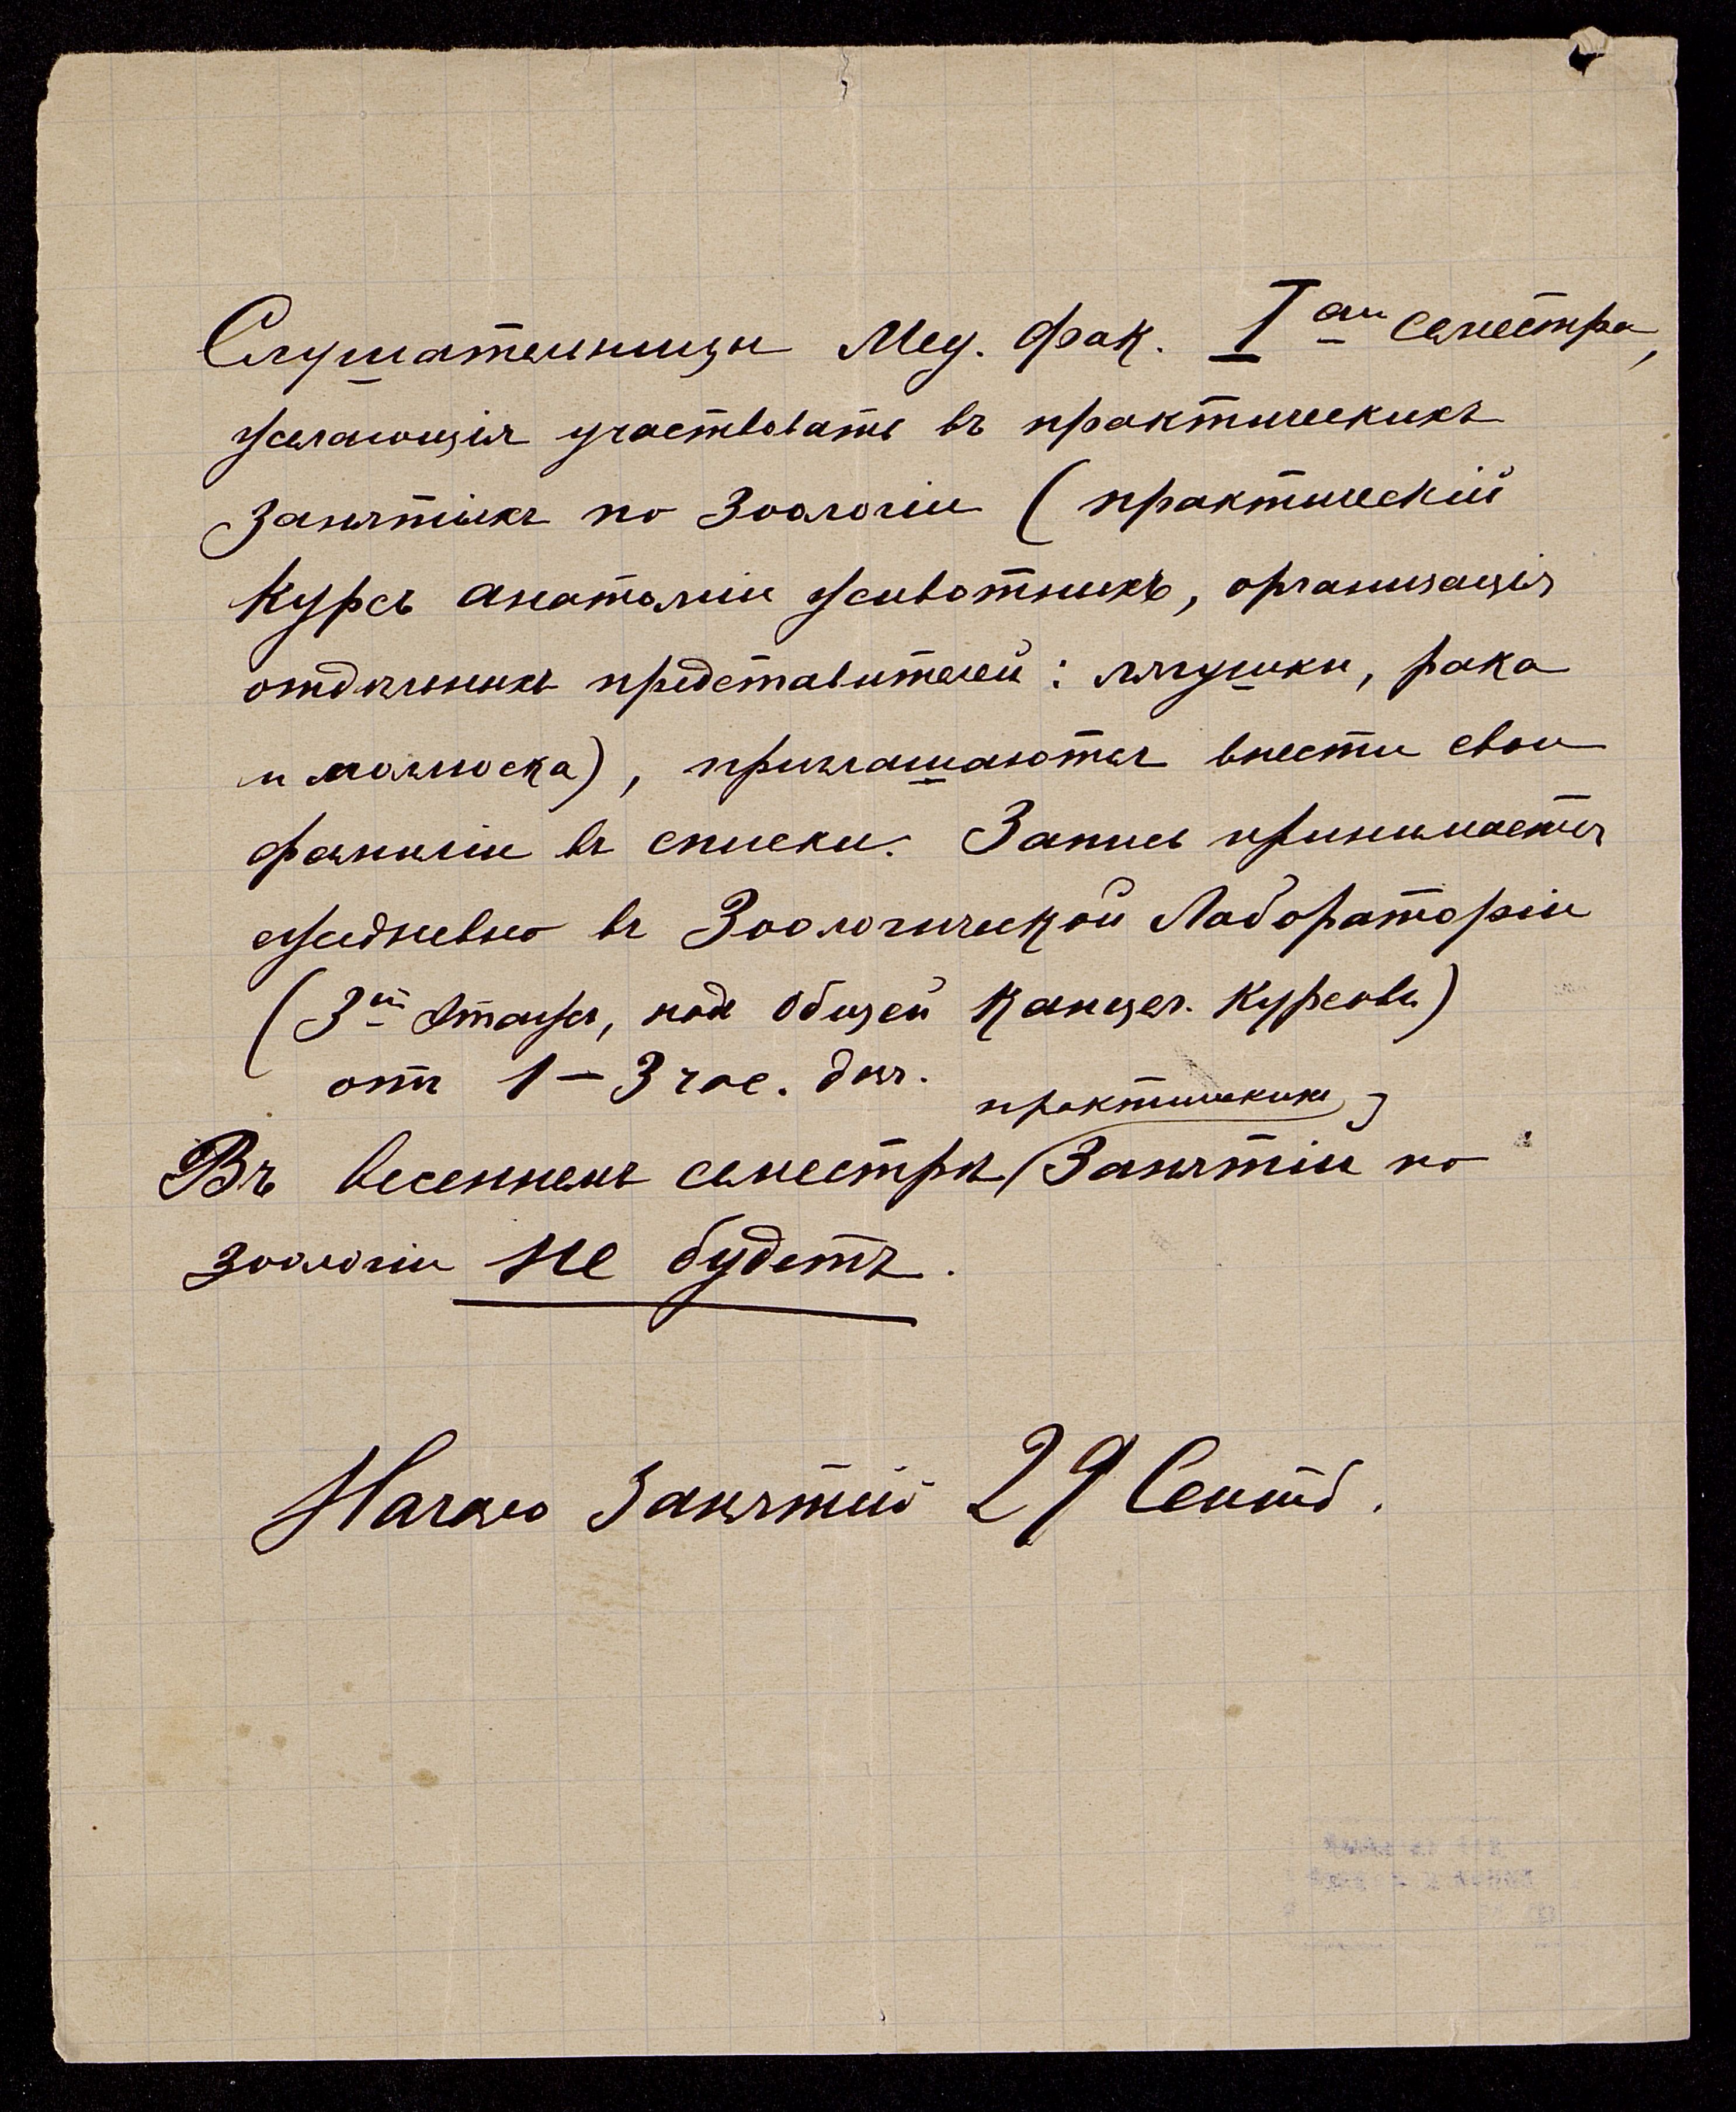 Слушательницы Мед. фак. I аго семестра,
желающія участвовать въ практическихъ
занятіяхъ по Зоологіи (практическій
курсъ анатоміи животныхъ, организація
отдѣльныхъ представителей: лягушки, рака
и моллюска), приглашаются внести свои
фамиліи въ списки. Запись принимается
ежедневно въ Зоологической Лабораторіи
(3й этажъ, надъ Общей Канцел. Курсовъ)
отъ 1–3 час. дня.
практическихъ
Въ весеннемъ семестрѣ занятій по
зоологіи не будетъ.
Начало занятій 29 Сентб.